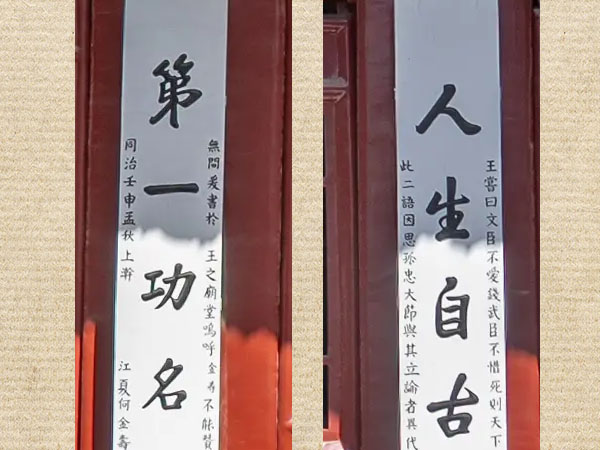 王嘗曰文臣不愛錢武臣不惜死則天下
人生自古
此二語因思孤忠大節與其立論者異代
無間爰書於 王之廟堂嗚呼金壽不能贊
第一功名
同治壬申孟秋上澣 江夏何金壽